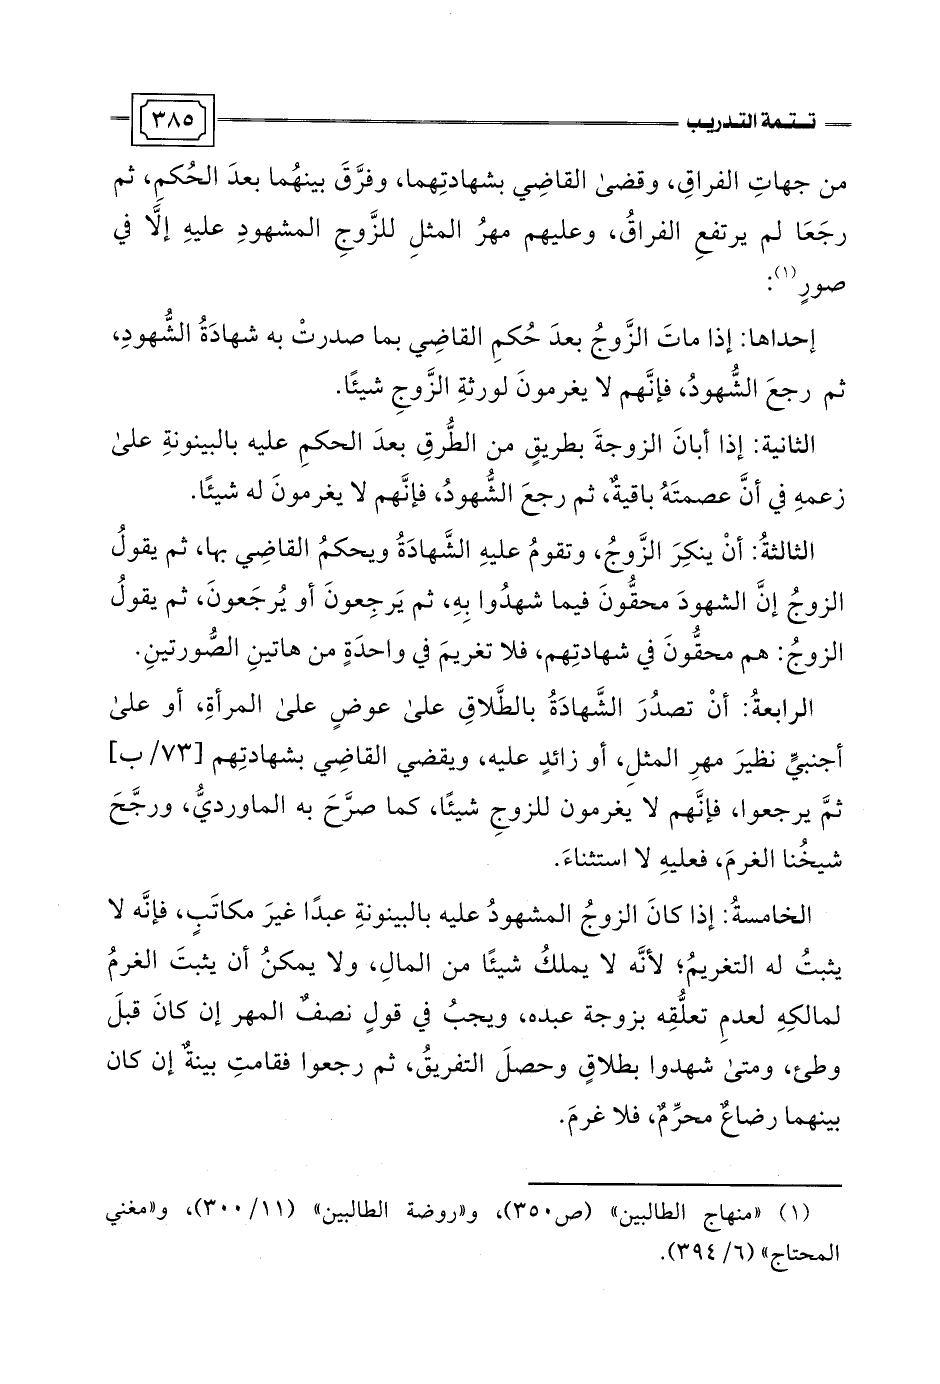 تـتـمة التـدريب
٣٨٥
من جهاتِ الفراقِ، وقضىٰ القاضِي بشهادتِهما، وفرَّقَ بينهُما بعدَ الحُكمِ، ثم
رجَعَا لم يرتفعِ الفراقُ، وعليهم مهرُ المثلِ للزَّوجِ المشهودِ عليهِ إلَّا في
صورٍ(١):
إحداها: إذا ماتَ الزَّوجُ بعدَ حُكمِ القاضِي بما صدرتْ به شهادَةُ الشُّهودِ،
ثم رجعَ الشُّهودُ، فإنَّهم لا يغرمونَ لورثةِ الزَّوجِ شيئًا.
الثانية: إذا أبانَ الزوجةَ بطريقٍ من الطُّرقِ بعدَ الحكمِ عليه بالبينونةِ علىٰ
زعمهِ في أنَّ عصمتَهُ باقيةٌ، ثم رجعَ الشُّهودُ، فإنَّهم لا يغرمونَ له شيئًا.
الثالثةُ: أنْ ينكِرَ الزَّوجُ، وتقومُ عليهِ الشَّهادَةُ ويحكمُ القاضِي بها، ثم يقولُ
الزوجُ إنَّ الشهودَ محقُّونَ فيما شهدُوا بِهِ، ثم يَرجِعونَ أو يُرجَعونَ، ثم يقولُ
الزوجُ: هم محقُّونَ في شهادتِهم، فلا تغريمَ في واحدَةٍ من هاتينِ الصُّورتينِ.
الرابعةُ: أنْ تصدُرَ الشَّهادَةُ بالطَّلاقِ علىٰ عوضٍ علىٰ المرأةِ، أو علىٰ
أجنبيٍّ نظيرَ مهرِ المثلِ، أو زائدٍ عليه، ويقضي القاضِي بشهادتِهم [٧٣/ ب]
ثمَّ يرجعوا، فإنَّهم لا يغرمون للزوجِ شيئًا، كما صرَّحَ به الماورديُّ، ورجَّحَ
شيخُنا الغرمَ، فعليهِ لا استثناءَ.
الخامسةُ: إذا كانَ الزوجُ المشهودُ عليه بالبينونةِ عبدًا غيرَ مكاتَبٍ، فإنَّه لا
يثبتُ له التغريمُ؛ لأنَّه لا يملكُ شيئًا من المالِ، ولا يمكنُ أن يثبتَ الغرمُ
لمالكِهِ لعدمِ تعلُّقِه بزوجة عبده، ويجبُ في قولٍ نصفٌ المهر إن كانَ قبلَ
وطءٍ، ومتىٰ شهدوا بطلاقٍ وحصلَ التفريقُ، ثم رجعوا فقامتِ بينةٌ إن كان
بينهما رضاعٌ محرِّمٌ، فلا غرمَ.
(١) «منهاج الطالبين» (ص٣٥٠)، و«روضة الطالبين» (١١/ ٣٠٠)، و«مغني
المحتاج» (٦/ ٣٩٤).